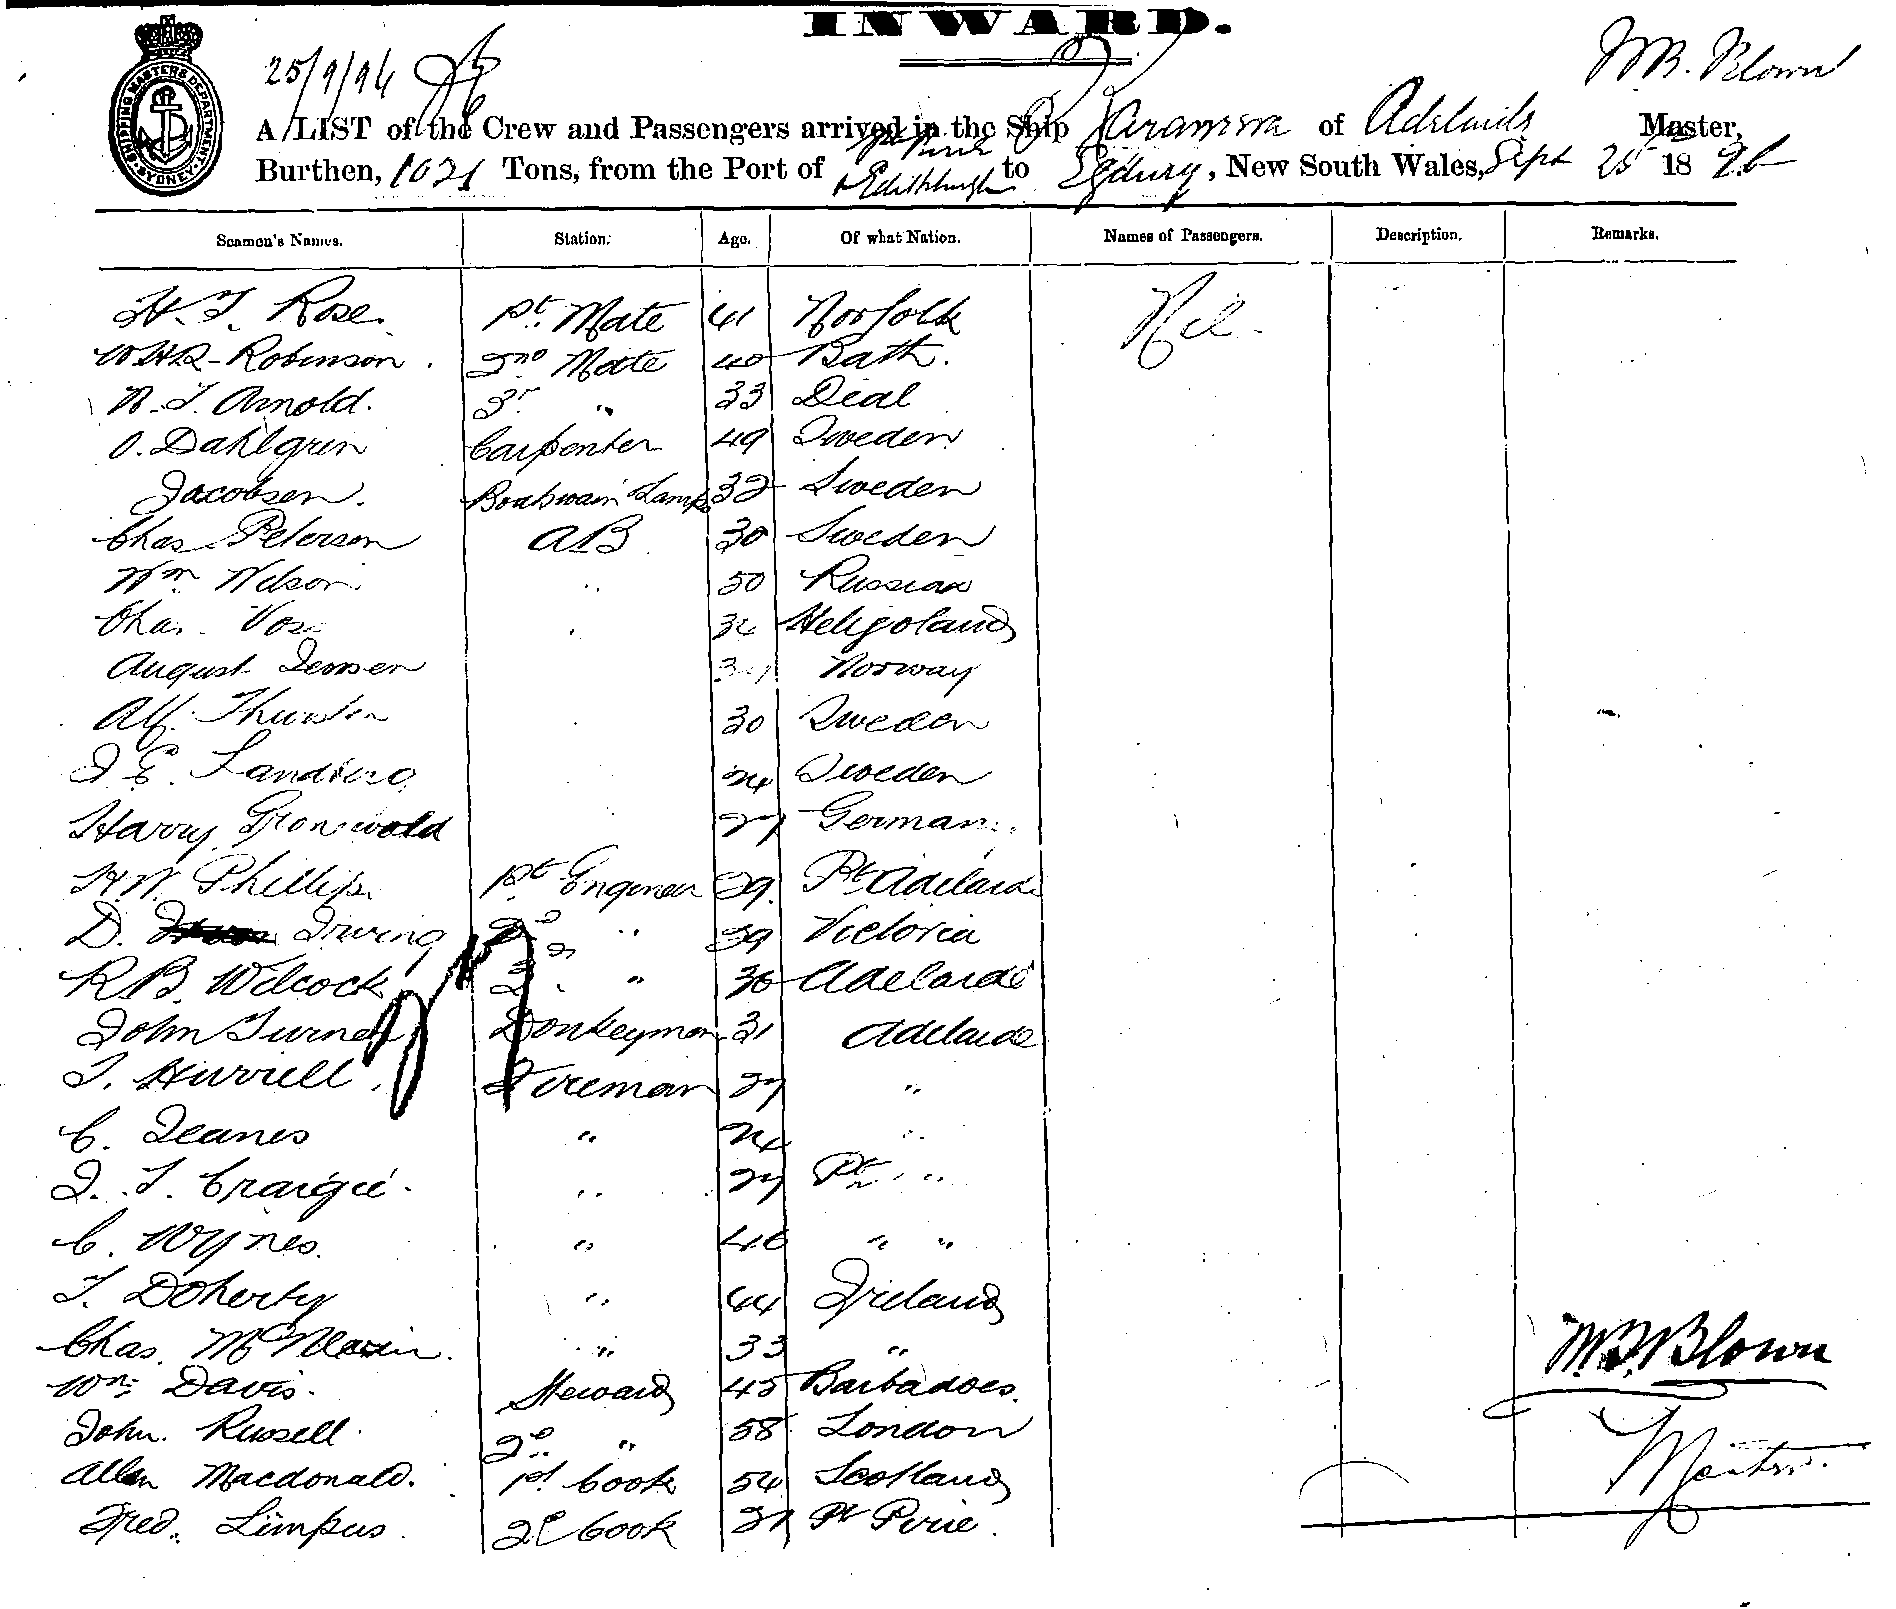 INWARD.
25/9/96
W. Blown
SHIPPING MASTERS DEPARTMENT SYDNEY
A LIST of the Crew and Passengers arrived in the Ship of Adelaide Master,
Burthen, 1021 Tons, from the Port of Pt Pirie & Edithburgh to Sydney, New South Wales, Sept 25 1896
Seamen's Names. Station. Age. Of what Nation. Names of Passengers. Description. Remarks.
H. J. Rose. 1st Mate 41 Norfolk Nil.
W H R Robinson. 2nd Mate 40 Bath.
N. J. Arnold. 3r " 33 Deal
O. Dahlgren Carpenter 49 Sweden
Jacobsen. Boatswain Lamps 32 Sweden
Chas Peterson AB 30 Sweden
Wm Nelson " 50 Russian
Chas. Voss " Heligoland
August Jensen Norway
Alf. Thurston 30 Sweden
J E. Landberg 24 Sweden
Harry Gronswold 27 German
H. W. Phillips 1st Engineer 39 Pt Adelaide
D. Irving 2d " 39 Victoria
R B. Wilcock 3r " 36 Adelaide
John Turner Donkeyman 31 Adelaide
J. Hurrell Fireman 27 "
C. Jeanes " 24 "
J. T. Craigie. " 27 Pt "
C. Wynes. " 46 " "
J. Doherty " 44 Ireland
Chas. " 33 "
Wm Davis. Steward 45 Barbadoes.
John. Russell. 2d " 58 London
Allen Macdonald. 1st Cook 54 Scotland
Fred. Limpus. 2d Cook 27 Pt Pirie.
W. J. Blown
Master.